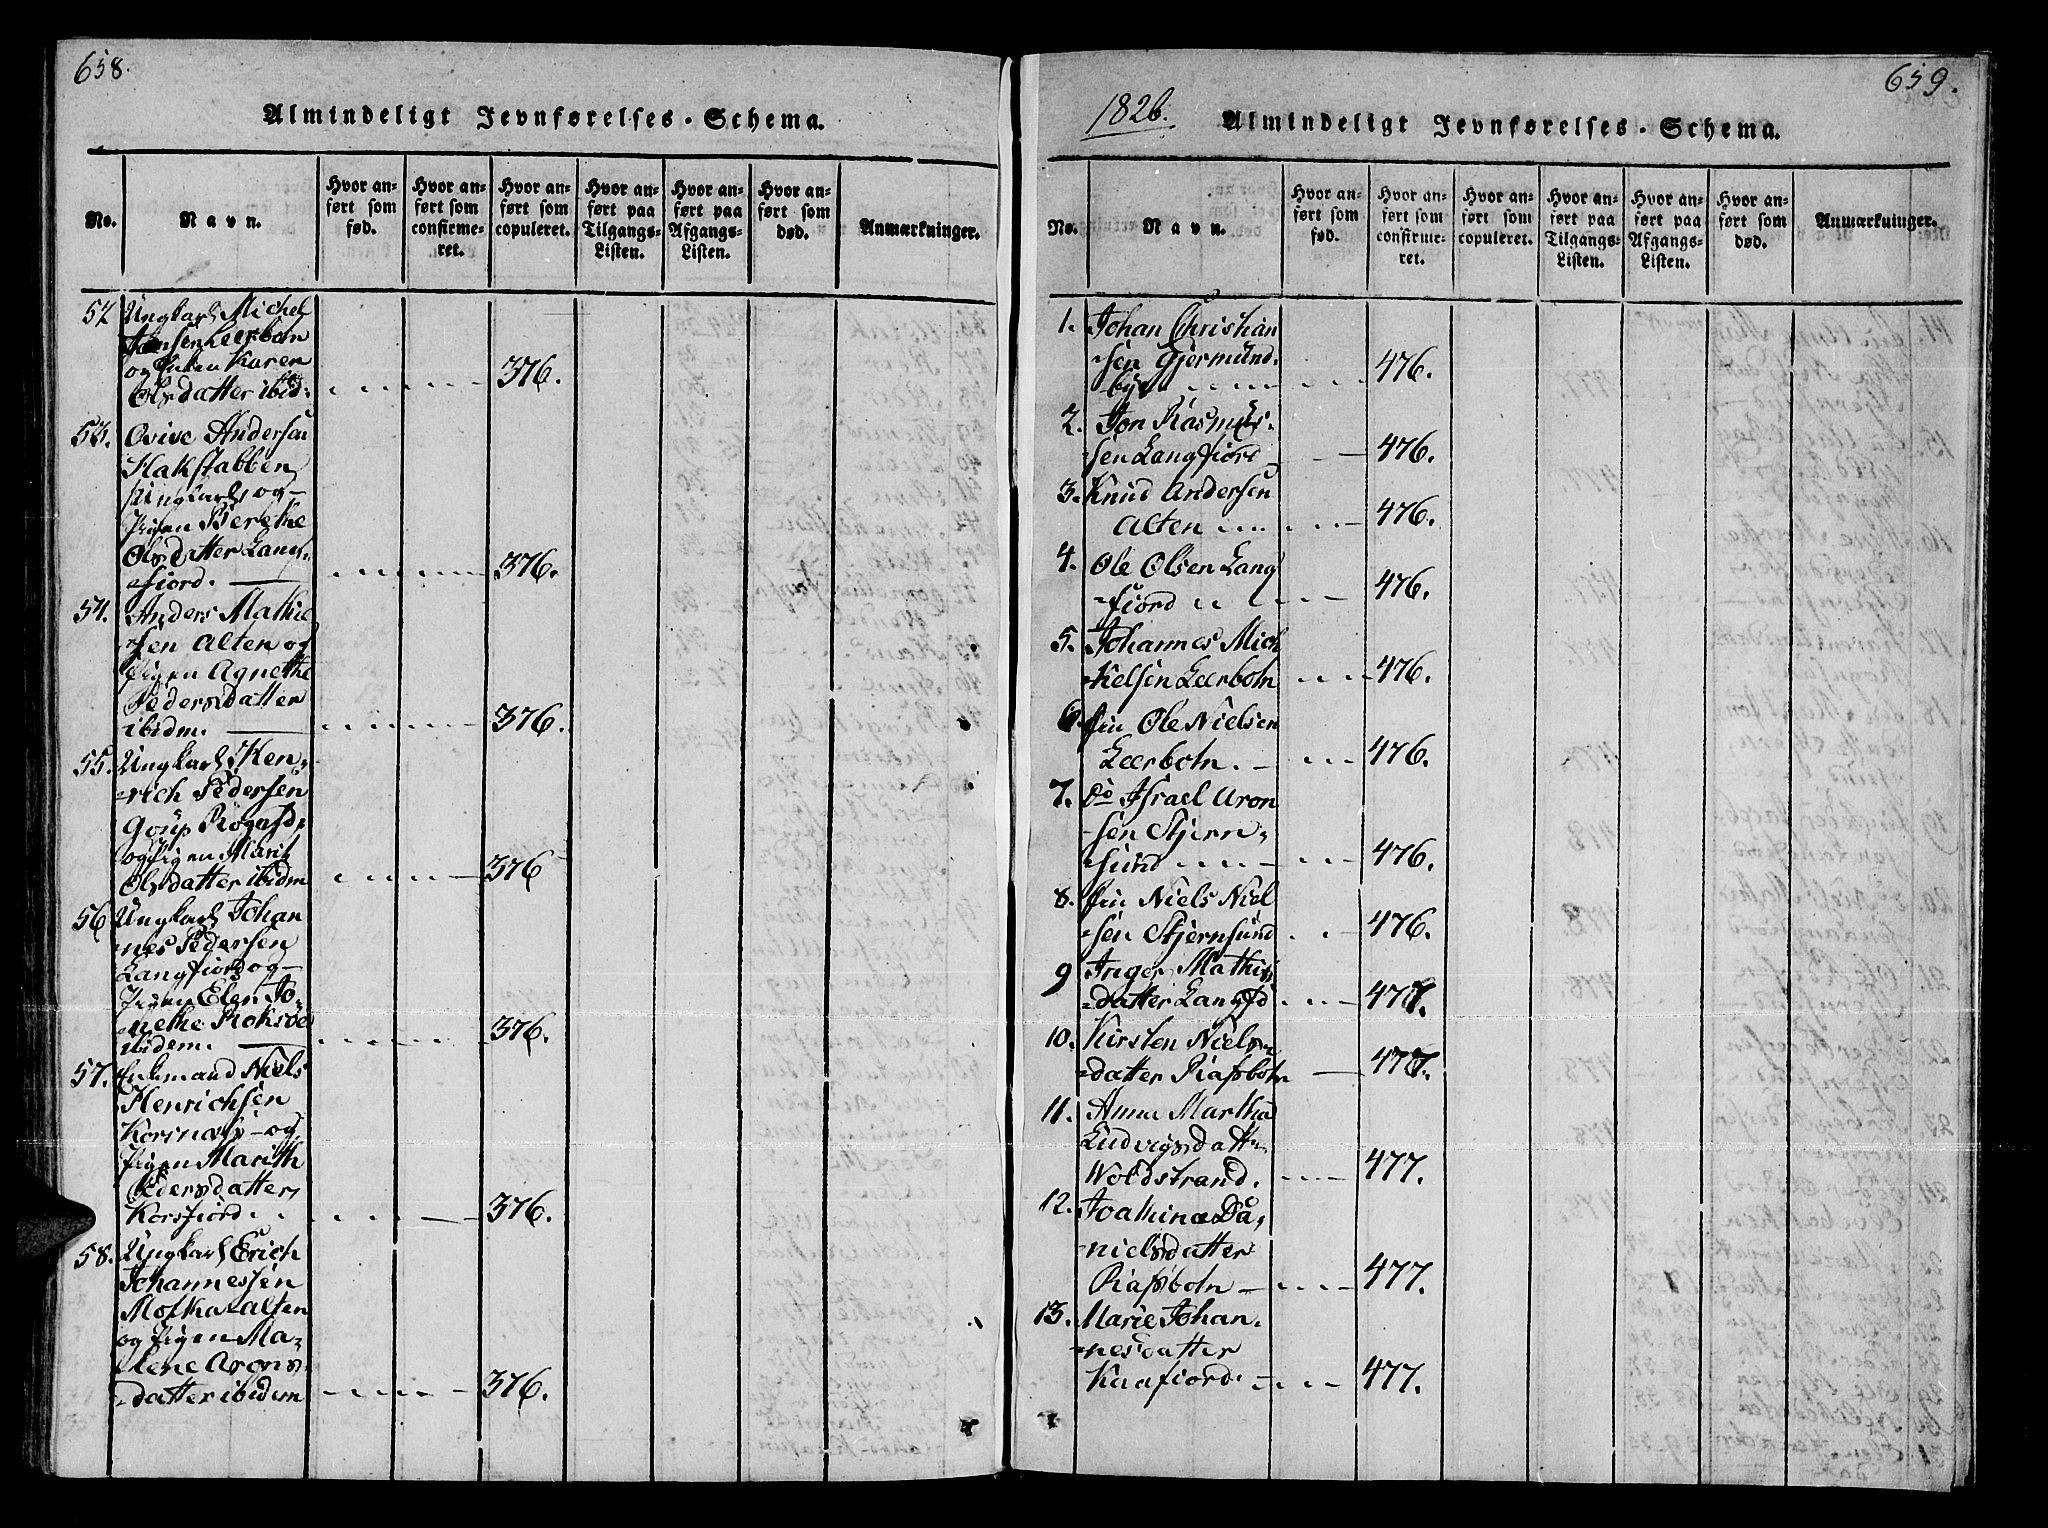 658.
Almindeligt Jevnførelses-Schema.
No.
Navn.
Hvor anført som fød.
Hvor anført som confirmeret.
Hvor anført som copuleret.
Hvor anført paa Tilgangs-Listen.
Hvor anført paa Afgangs-Listen.
Hvor anført som død.
Anmærkninger.
52 Ungkarl Michel
Jonsen Leerbotn
og Enken Karen
Olsdatter ibid: 376.
53. Andersen
Hakstabben
Ungkarl, og
Pigen Berethe
Olsdatter Lang-
fiord. 376.
54. Anders Mathie
sen Alten og
Pigen Agnethe
Pedersdatter
ibidm. 376.
55. Ungkarl Hen-
rich Pedersen
Rognsd,
og Pigen Marit
Olsdatter ibidm 376
56 Ungkarl Johan
nes Pedersen
Langfiord og
Pigen Elen Jo-
nethe Roksöe
ibidem. 376.
57. Enkemand Niels
Henrichsen
Korsnæs og
Pigen Marith
Pedersdatter
Korsfiord. 376.
58. Ungkarl Erich
Johannessen
Alten
og Pigen Ma-
lene Arons-
datter ibidem 376.
1826.
Almindeligt Jevnførelses-Schema.
659.
No.
Navn.
Hvor anført som fød.
Hvor anført som confirmeret.
Hvor anført som copuleret.
Hvor anført paa Tilgangs-Listen.
Hvor anført paa Afgangs-Listen.
Hvor anført som død.
Anmærkninger.
1. Johan Christian
sen Gjermund-
bye 476.
2. Jon Rasmus-
sen Langfiord 476.
3. Knud Andersen
Alten 476.
4. Ole Olsen Lang
fiord 476.
5. Johannes Mich
kelsen Leerbotn 476.
6. fin Ole Nielsen
Leerbotn. 476.
7. Do Israel Aron
sen Stjern-
sund 476.
8. fin Niels Niel
sen Stjernsund 476.
9 Inger Mathis
datter Langfd 477.
10. Kirsten Niels-
datter Rafsbotn 477.
11. Anna Martha
Ludvigsdatter
Woldstrand. 477.
12. Joathina Da-
nielsdatter
Rafsbotn 477.
13. Marie Johan-
nesdatter
Kaafiord. 477.